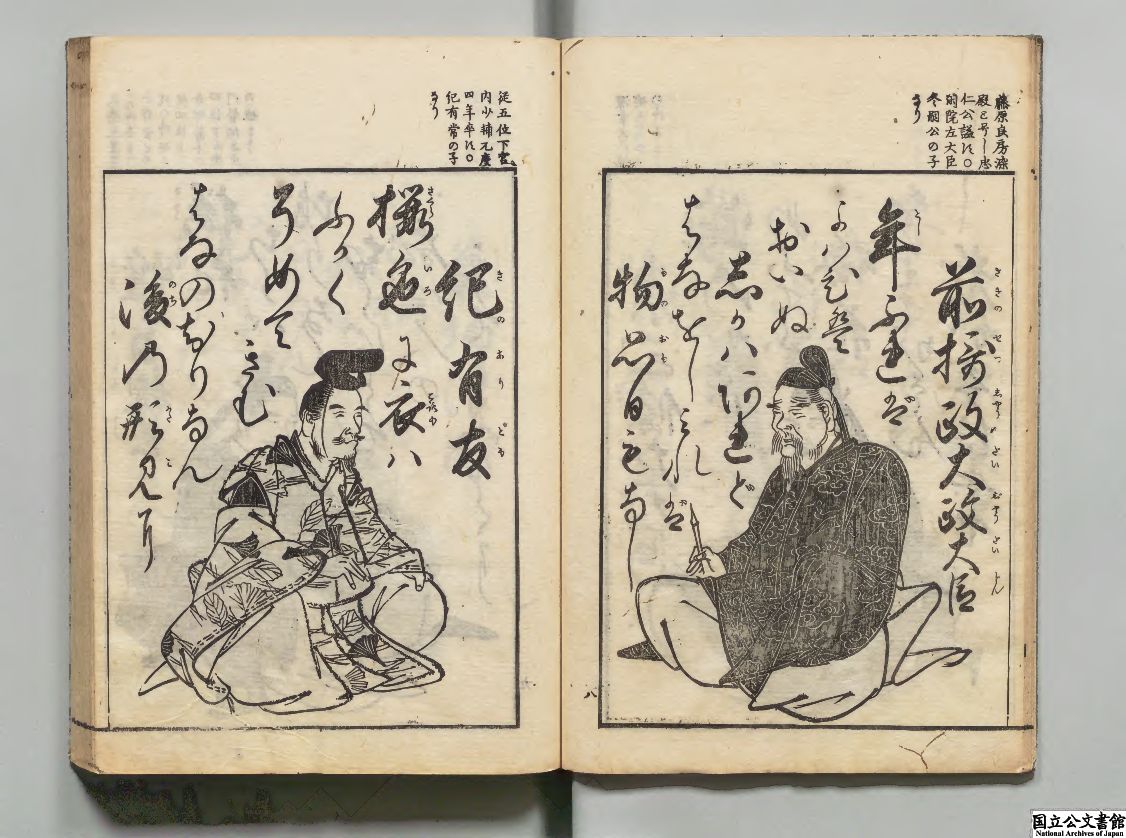 藤原良房染
殿と号し忠
仁公諡す○
閑院左大臣
冬嗣公の子
なり
前摂政大政大臣
年ふれば
よハひは
おいぬ
志かハあれど
はなをしみれば
物思日もなし
従五位下宮
内少輔元慶
四年卒す○
紀有常の子
なり
紀有友
桜色に衣ハ
ふかく
そめて
きむ
はなのちりなん
後乃形見に
国立公文書館
National Archives of Japan